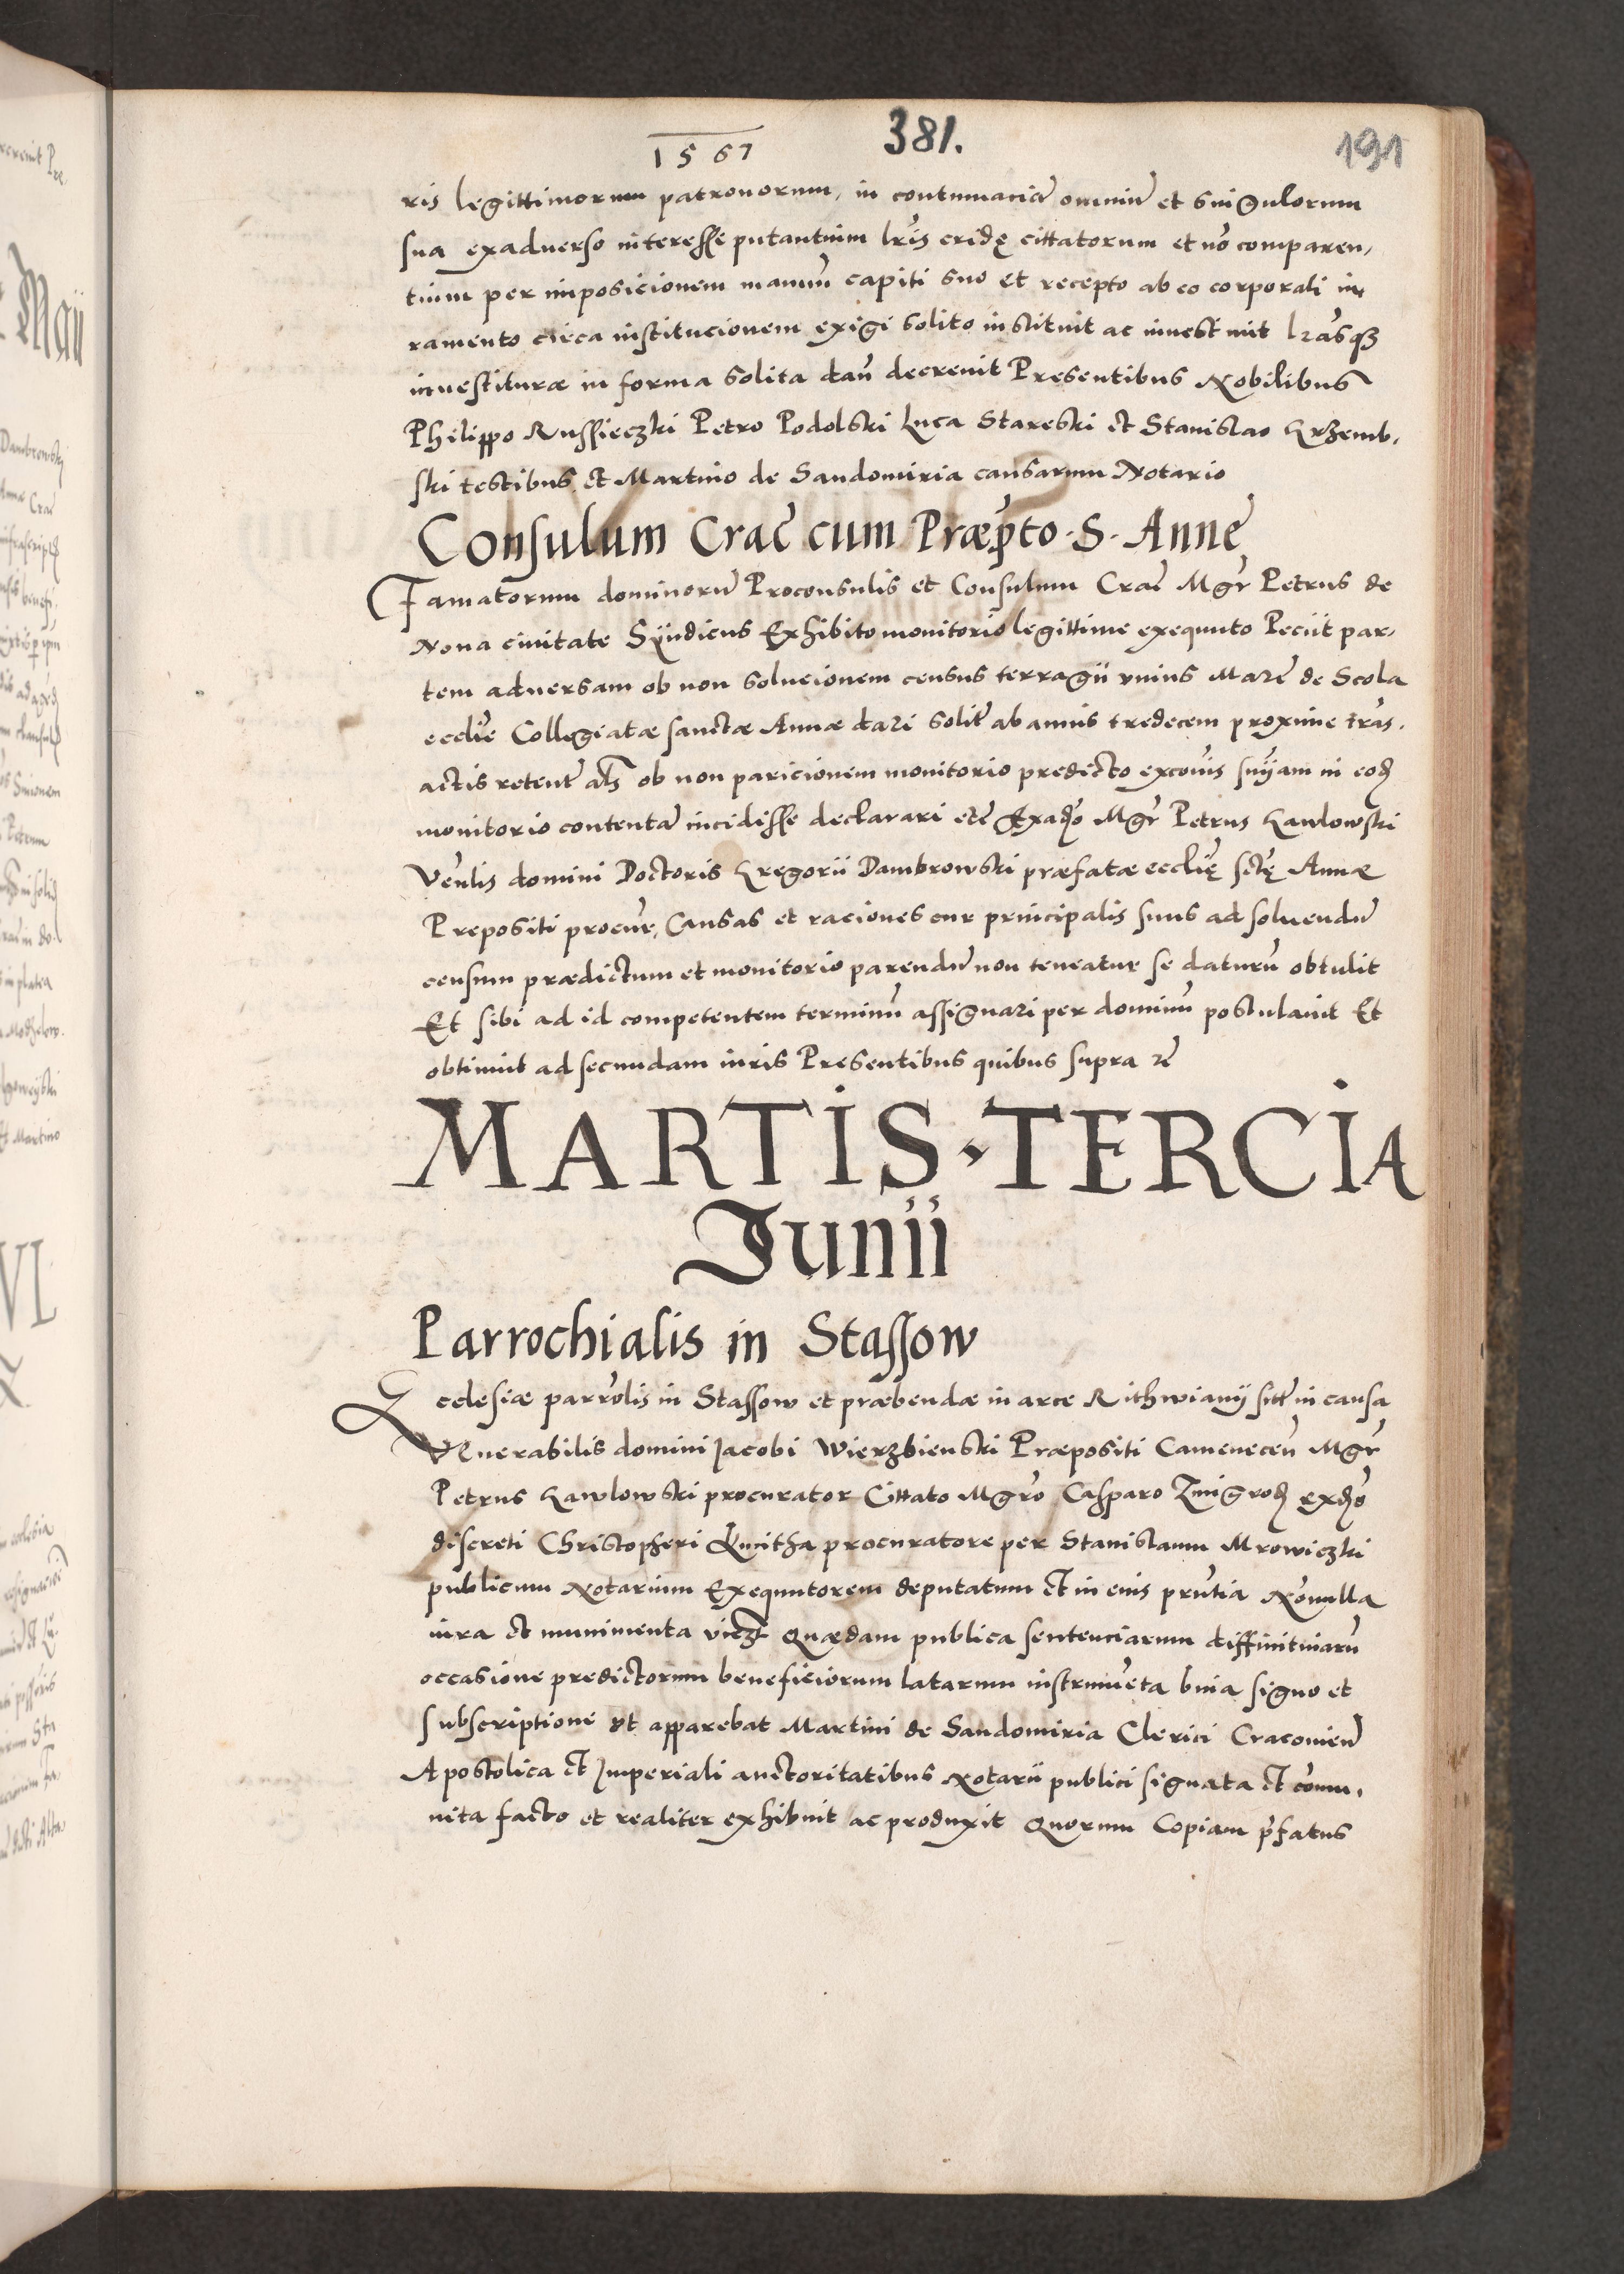 1567
381.
191
ris legittimorum patronorum, in contumaciã omniũ et singulorum
sua exadverso interesse putantium lr̃is cridę cittatorum et nõ comparen,
tium per imposicionem manuũ capiti suo et recepto ab eo corporali iu,
ramento circa institucionem exigi solito instituit ac investiuit lr̃asq3
investituræ in forma solita dan̄ decrevit Presentibus Nobilibus
Philippo Russieczki Petro Podolski Luca Stareski et Stanislao Krzemb,
ski testibus et Martino de Sandomiria causarum Notario
Consulum Crac̃ cum Præp̃to S. Anne
Famatorum dominorũ Proconsulis et Consulum Crac̃ Mgr̃ Petrus de
Nova civitate Syndicus Exhibito monitorio legittime exequuto Peciit par,
tem adversam ob non solucionem census terragii unius Marc̃ de Scola
eccl̃ie Collegiatæ sanctæ Annæ dari solit̃ ab annis tredecem proxime tr̃as,
actis retent̃ al̃s ob non paricionem monitorio predicto excõis sñiam in eod̃
monitorio contentã incidisse declarari etc̃ Exad̃so Mgr̃ Petrus Kawlowski
Veñlis domini Doctoris Gregorii Dambrowski præfatæ eccl̃ię sctę Annæ
Prepositi procur̃, Causas et raciones cur principalis suus ad solvendũ
censum prædictum et monitorio parendũ non teneatur se daturũ obtulit
Et sibi ad id competentem terminũ assignari per dominũ postulavit Et
obtinuit ad secundam iuris Presentibus quibus supra rc̃
MARTIS · TERCIA
Junii
Parrochialis in Stassow
Ecclesiæ parr̃olis in Stassow et præbendæ in arce Rithwiany sitt̃ in causa
Venerabilis domini Jacobi Wierzbienski Præpositi Camenecen̄ Mgr̃
Petrus Kawlowski procurator Cittato Mgr̃o Casparo Zmigrod̃ exd̃so
discreti Christopheri Kmitha procuratore per Stanislaum Mrowiczki
publicum Notarium Exequutorem deputatum et in eius pr̃ntia Nonnulla
iura et munimenta vicz̃ quædam publica sentenciarum diffinitivarũ
occasione predictorum beneficiorum latarum instrumẽta bina signo et
subscriptione ut apparebat Martini de Sandomiria Clerici Cracovien̄
Apostolica et Imperiali auctoritatibus Notarii publici signata et cõmu,
nita facto et realiter exhibuit ac produxit quorum Copiam p̃fatus